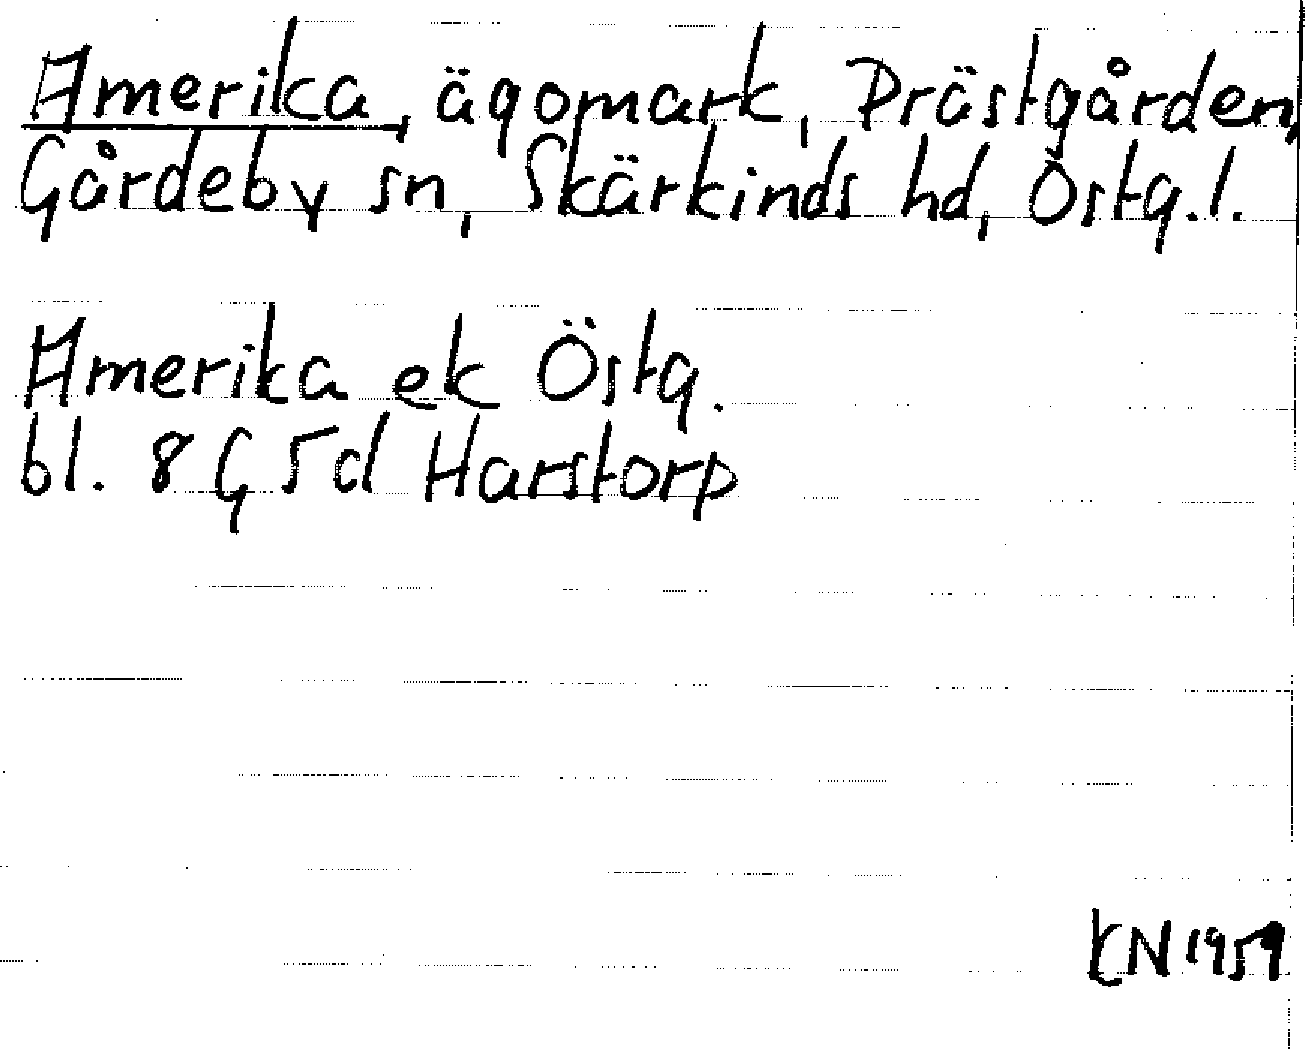 Amerika, ägomark, Prästgården,
Gårdeby sn, Skärkinds hd, Östg.l.
Amerika ek Östg.
bl. 8 G 5d Harstorp
KN 1959